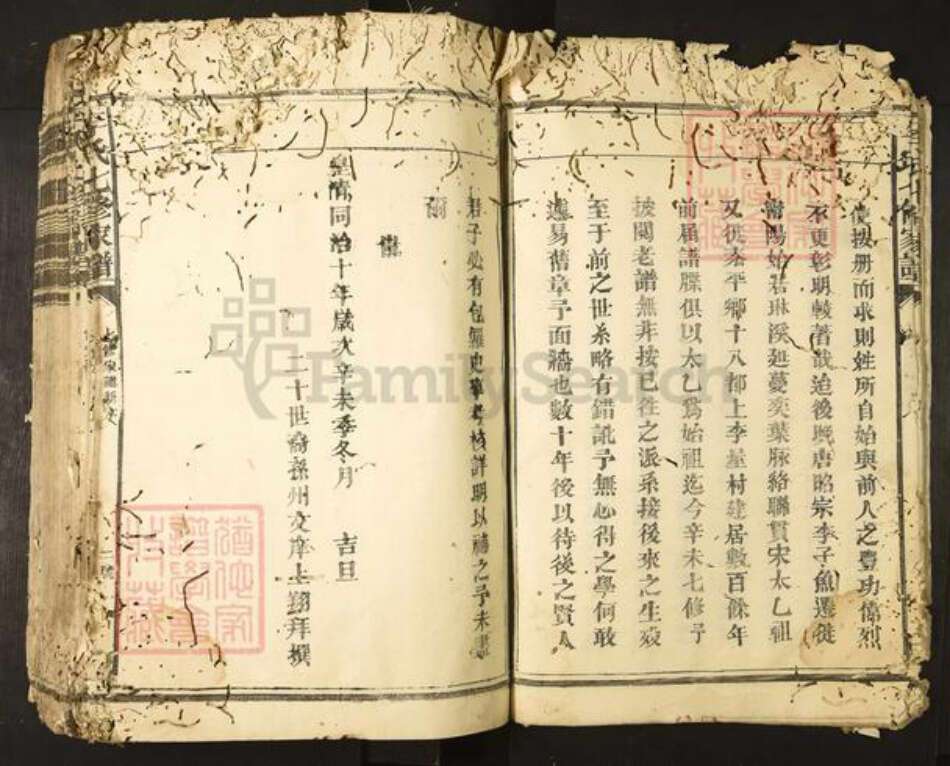 氏七修家譜
使按册而求則姓所自始與前人之豐功偉烈
不更彰明較著哉迨後晚唐昭宗李子魚遷徙
衡陽始君琳溪廸蔓奕葉脉絡聯貫宋太乙祖
又徙泰平鄉十八都上李屋村建居數百餘年
前届譜牒俱以太乙爲始祖迄今辛未七修予
披閱老譜無非按已往之派系接後來之生歿
至于前之世系略有錯訛予無心得之學何敢
易舊章予面牆也數十年後以待後之賢人
君子必有包羅史筆考核詳明以補之予未盡
爾
皇清同治十年歲次辛未季冬月 吉旦
二十世裔孫州文庠士翔拜撰
氏七修家譜
FamilySearch